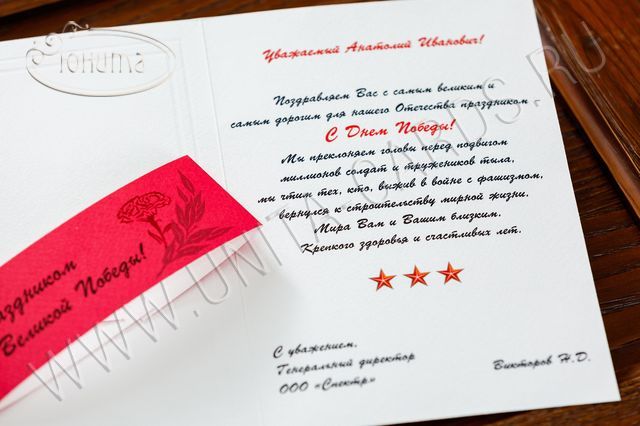 Юнита
Уважаемый Анатолий Иванович!
Поздравляем Вас с самым великим и
самым дорогим для нашего Отечества праздником -
С Днем Победы!
Мы преклоняем головы перед подвигом
миллионов солдат и тружеников тыла,
мы чтим тех, кто, выжив в войне с фашизмом,
вернулся к строительству мирной жизни.
Мира Вам и Вашим близким,
Крепкого здоровья и счастливых лет.
С уважением,
Генеральный директор
ООО «Спектр»
Викторов Н.Д.
аздником
Великой Победы!
WWW.UNITA-CARDS.RU